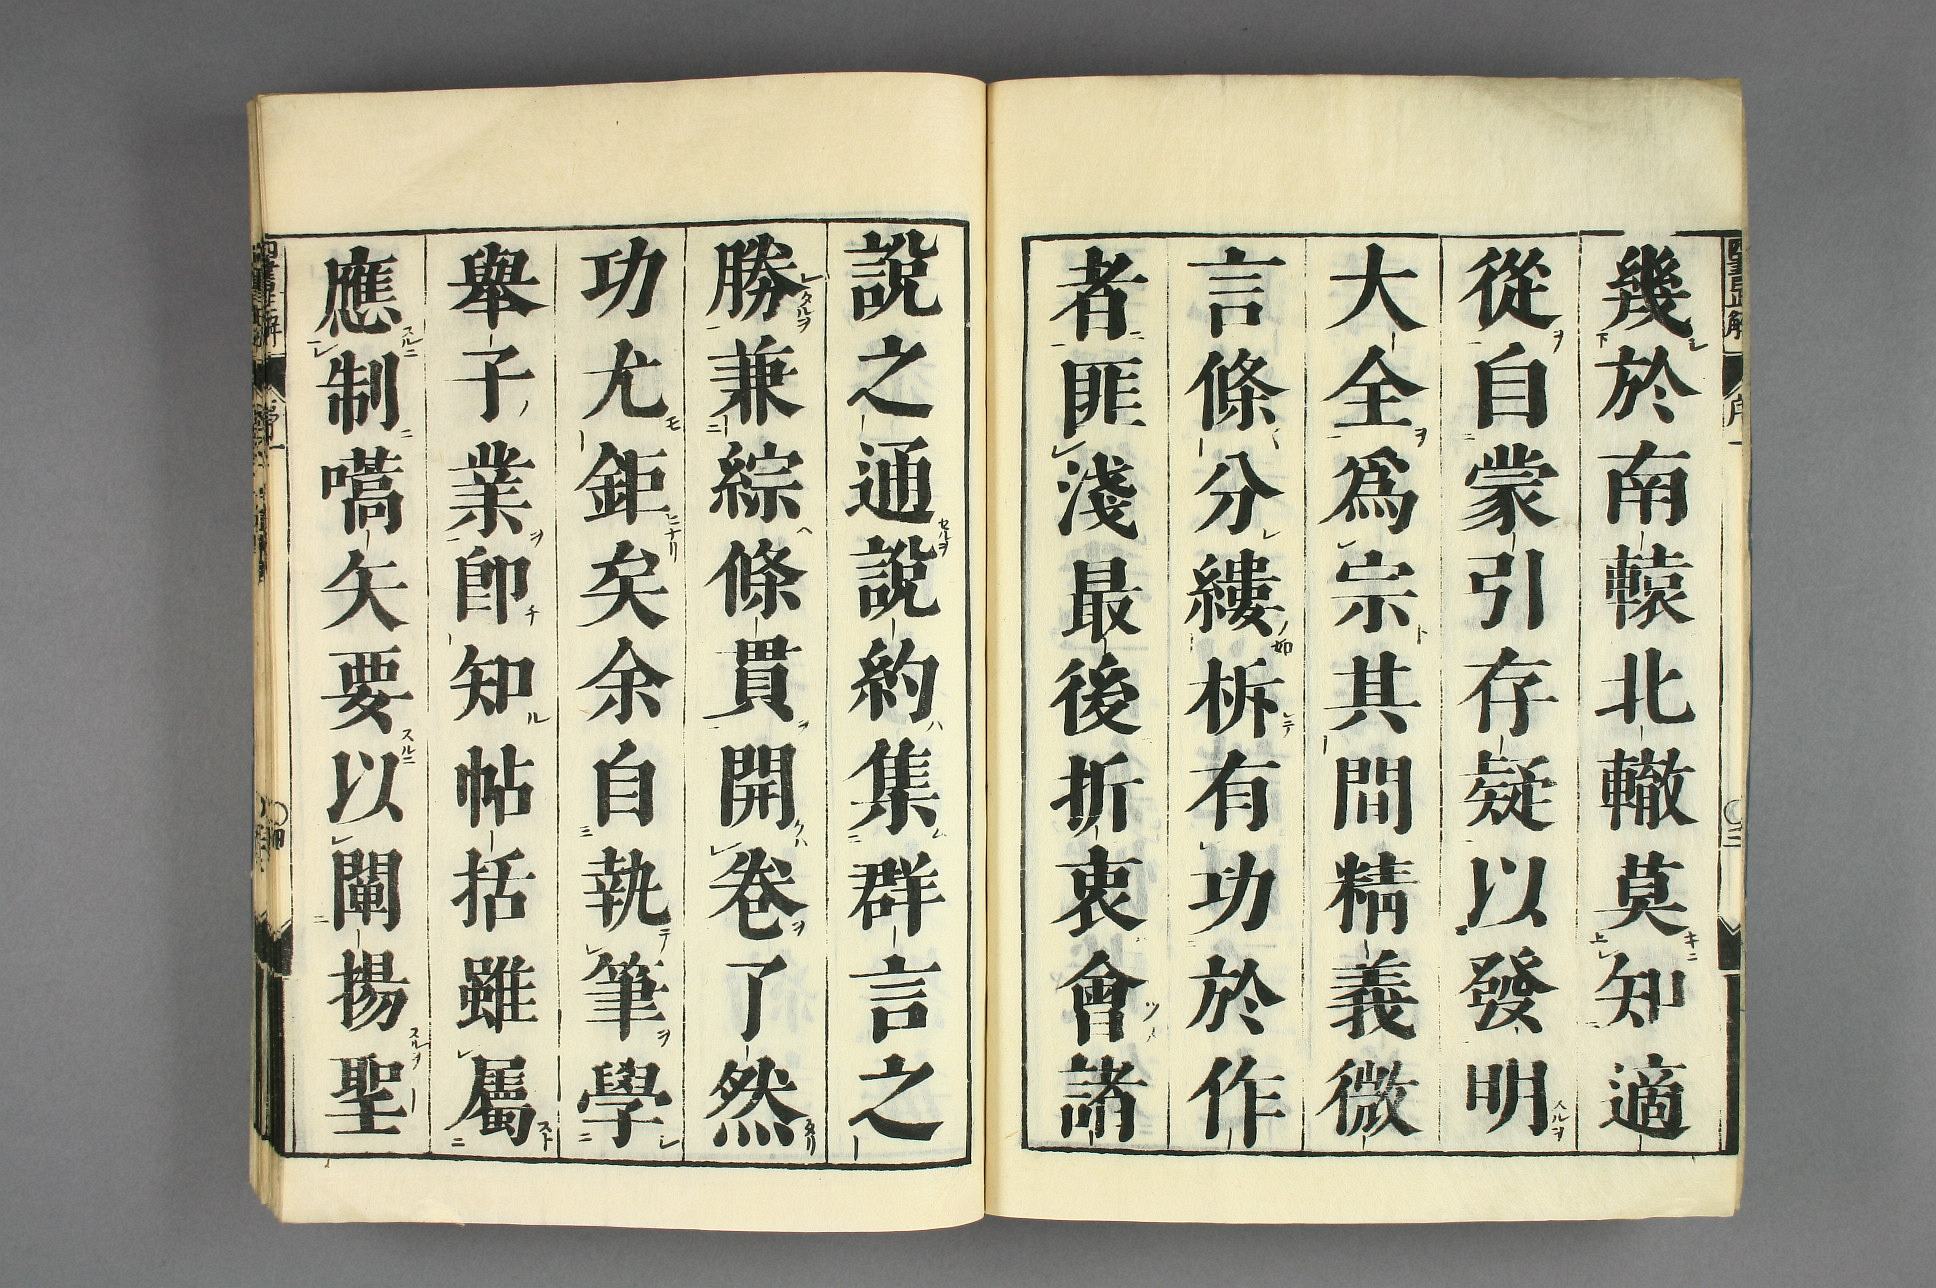 幾於南轅北轍莫知適
從自蒙引存疑以發明
大全爲宗其間精義微
言條分縷柝有功於作
者匪淺最後折衷會諸
說之通說約集群言之
勝兼綜條貫開卷了然
功尤鉅矣余自執筆學
舉子業卽知帖括雖屬
應制嚆矢要以闡揚聖